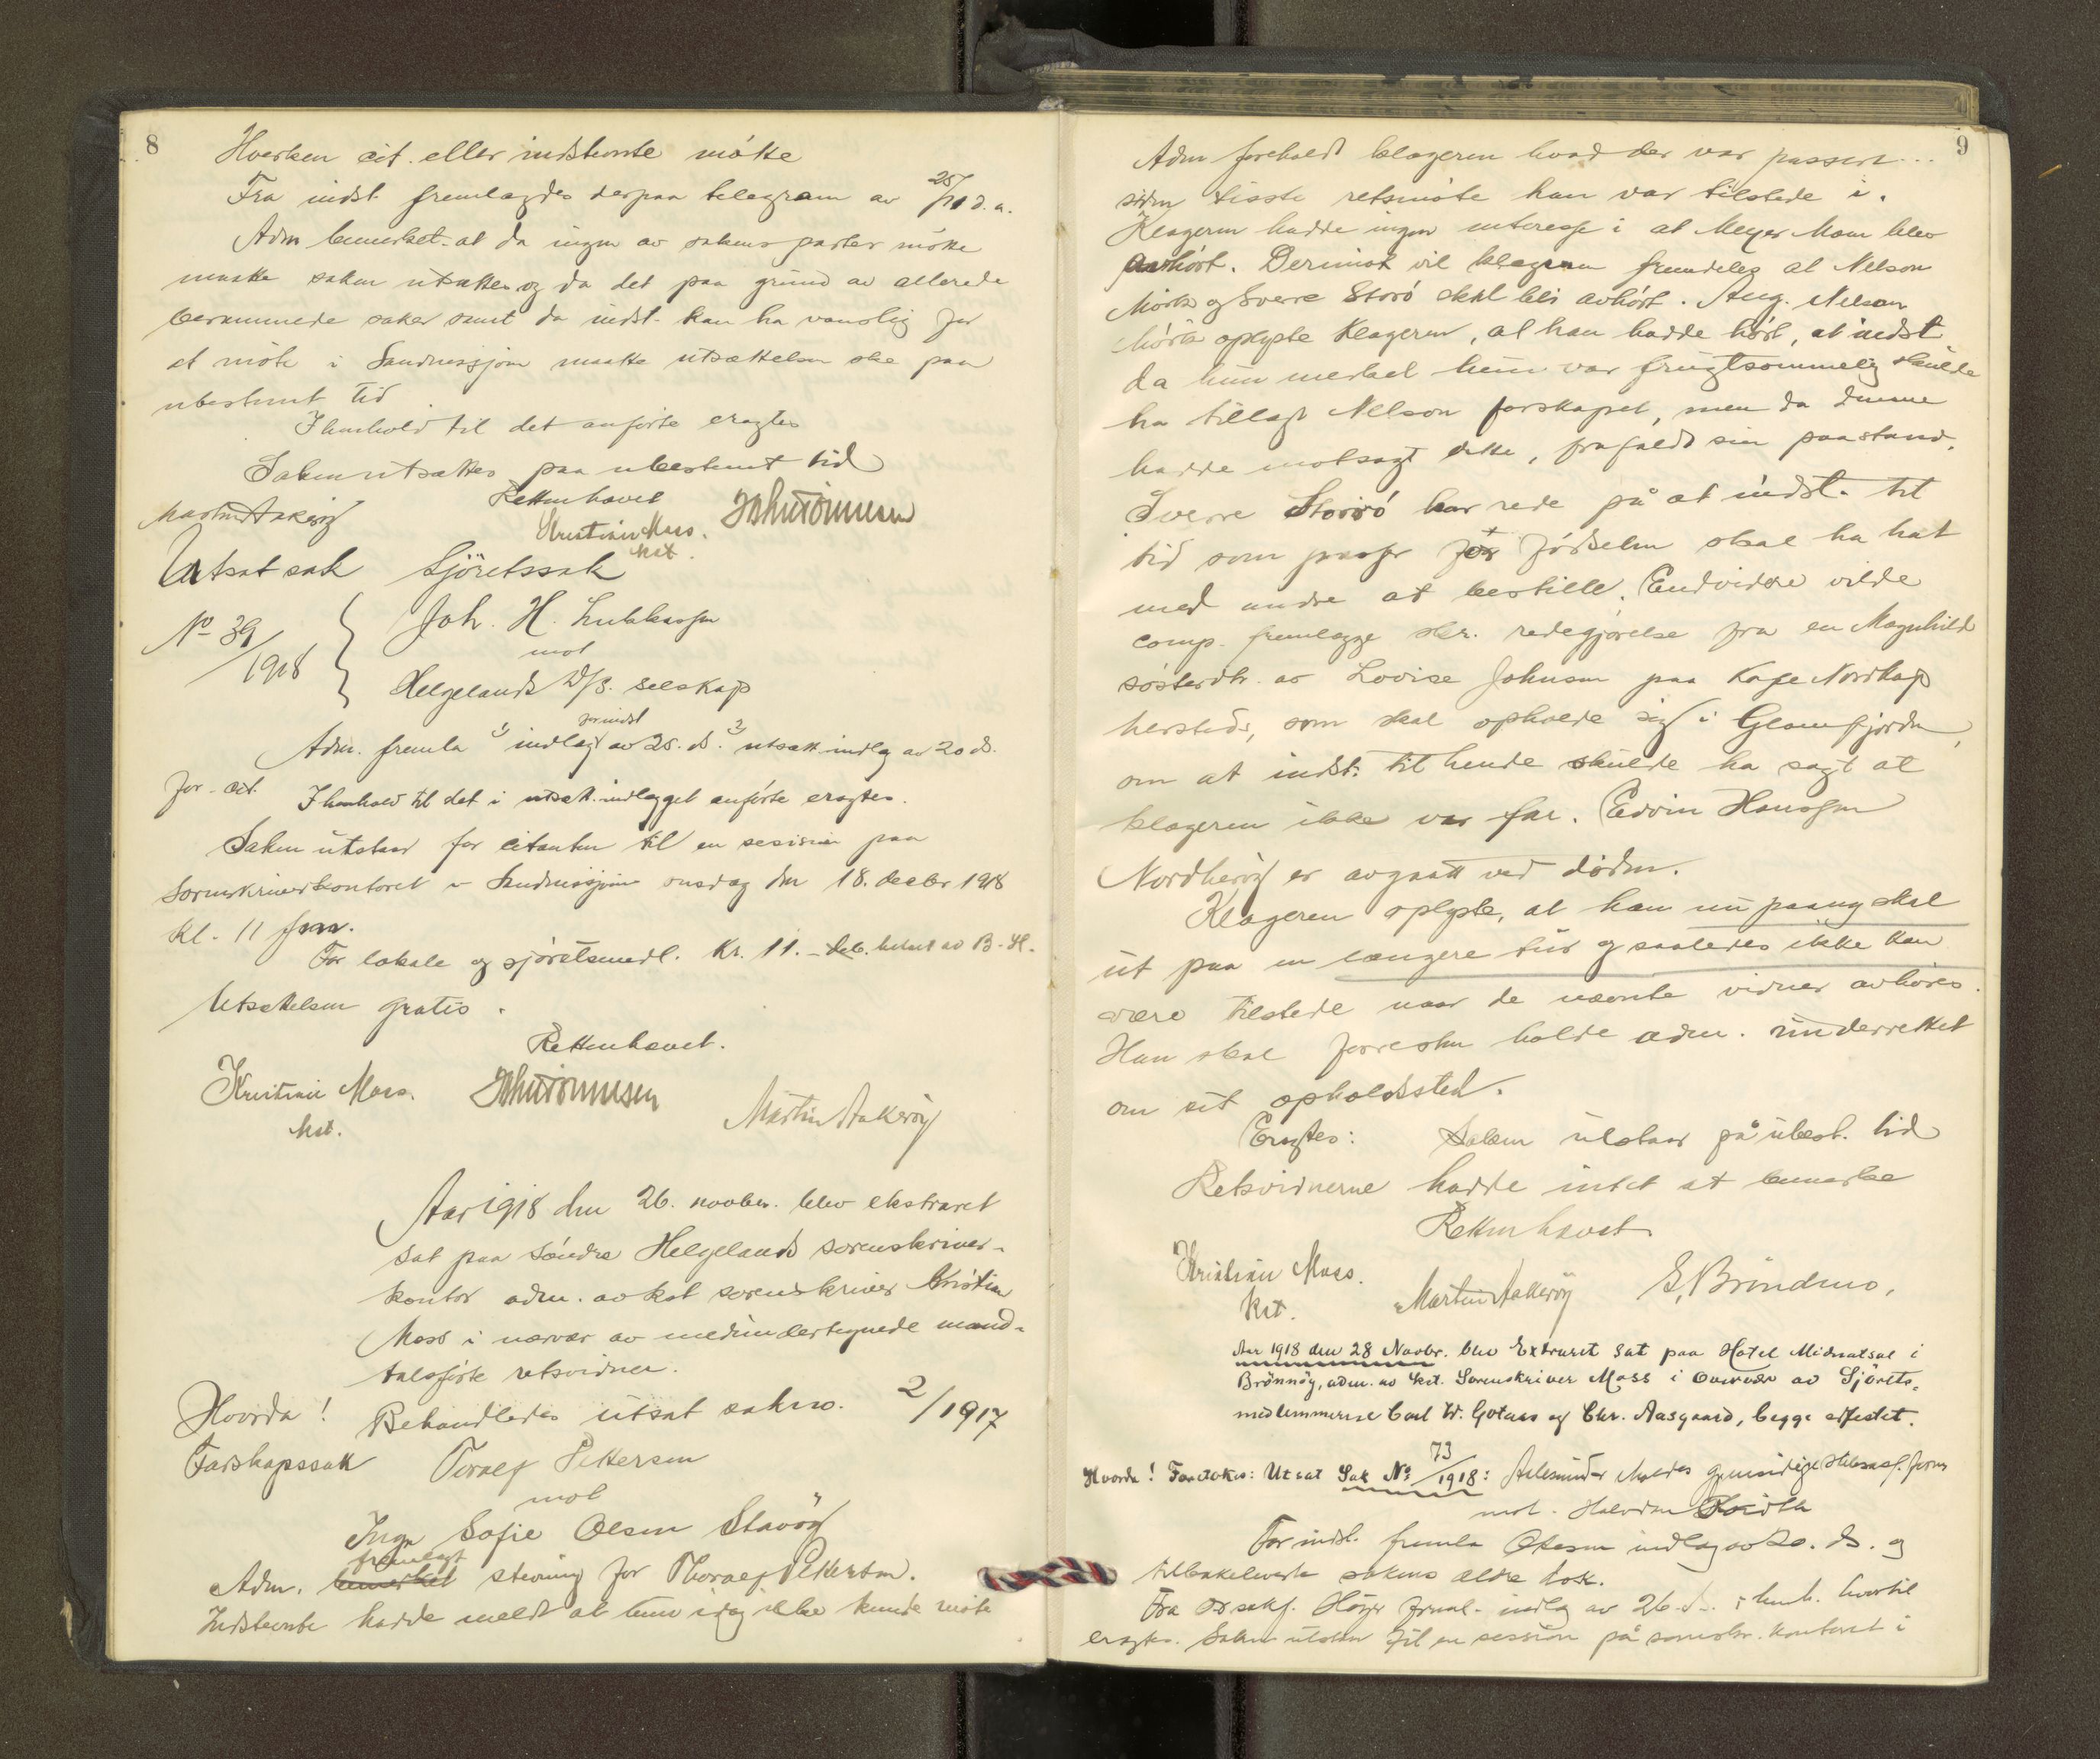 8
Hverken cit. eller indstevnte møtte
Fra indst. fremlagdes derpaa telegram av 25/11 d.a.
Adm. bemerket at da ingen av sakens parter møtte
maatte saken utsættes og da det paa grund av allerede
berammede saker samt da indst. kan ha vanslig for
at møte i Sandnessjøen maatte utsættelsen ske paa
ubestemt tid
I henhold til det anførte eragtes
Saken utsættes paa ubestemt tid
Retten hævet
Martin Aakerøy Kristian Moss. Joh Tønnesen
kst.
Utsat sak Sjöretssak
No 39/1918 Joh. H. Lukkassen
mot
Helgelands D/S. selskap
Adm. fremla 1) indlæg for indst av 25. ds. 2) utsætt. indlæg av 20 ds.
for cit. I henhold til det i utsæt. indlægget anførte eragtes.
Saken utstaar for citanten til en session paa
Sorenskriverkontoret i Sandnessjøen onsdag den 18. decbr 1918
kl. 11 fm.
For lokale og sjøretsmedl. kr. 11.- deb. betalt av B-H.
Utsættelsen gratis.
Retten hævet.
Kristian Moss. Joh Tønnesen Martin Aakerøy
kst.
Aar 1918 den 26. novbr. blev ekstraret
sat paa Søndre Helgelands sorenskriver-
kontor adm. av kst sorenskriver Kristian
Moss i nærvær av medundertegnede mand-
talsførte retsvidner.
Hvorda! Behandledes utsat sak no. 2/1917
Farskapssak Toralf Pettersen
mot
Inga Sofie Olsen Stavøy
fremlagt
Adm. bemerket stevning for Thoralf Pettersen.
Indstevnte hadde meldt at hun idag ikke kunde møte
9
Adm foreholdt klageren hvad der var passert
siden sisste retsmøte han var tilstede i.
Klageren hadde ingen interesse i at Meyer Moen blev
avhørt. Derimot vil klageren fremdeles at Nelson
Mørk og Sverre Storø skal bli avhørt. Aug. Nelson
Mørk oplyste Klageren, at han hadde hørt, at indst
da hun merket hun var frugtsommelig skulde
ha tillagt Nelson farskapet, men da denne
hadde motsagt dette, frafaldt sin paastand.
Sverre Storø har rede på at indst. til
tid som passer for fødselen skal ha hat
med andre at bestille. Endvidere vilde
comp. fremlægge skr. redegjørelse fra en Magnhild
søsterdtr. av Lovise Johnsen paa Kafe Nordkap
hersteds, som skal opholde sig i Glomfjorden,
om at indst. til hende skulde ha sagt at
klageren ikke var far. Edvin Hanssen
Nordherøy er avgaatt ved døden.
Klageren oplyste, at han nu paany skal
ut paa en længere tur og saaledes ikke kan
være tilstede naar de nævnte vidner avhøres.
Han skal forresten holde adm. underrettet
om sit opholdssted.
Eragtes: Saken utstaar på ubest. tid
Retsvidnerne hadde intet at bemerke
Retten hævet
Kristian Moss. Martin Aakerøy S. Brøndmo,
kst.
Aar 1918 den 28 Novbr. blev Extraret sat paa Hotel Midnatsol i
Brønnøy, adm. av kst. Sorenskriver Moss i overvær av Sjörets-
medlemmerne Carl W. Gotaas og Chr. Aasgaard, begge edfestet.
Hvorda! Foretokes: Utsat Sak No 73/1918: Aalesund og Moldes gjensidige
mot. Halvdan
For indst. fremla Olesen indlæg av 20. ds. og
tilbakeleverte sakens ældre dok.
Fra O.r.sakf. Høyer freml. indlæg av 26. ds. i henh. hvortil
eragtes. Saken utstaar til en session på sorenskr. kontoret i